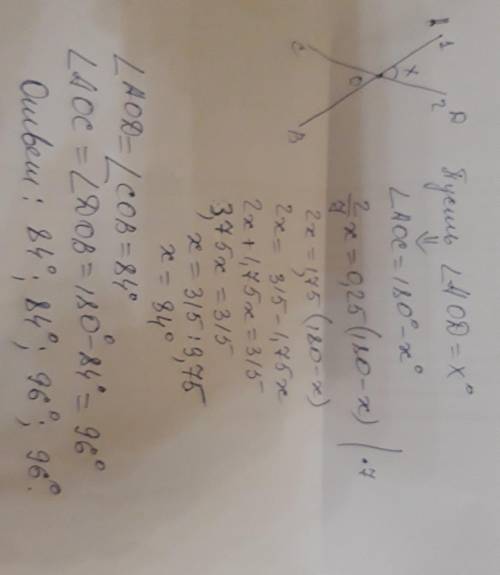 A
1
C
x
O
2
D
B
Пусть ∠AOD = x°
⇓
∠AOC = 180° - x°
2/7 x = 0,25 (180 - x) | ·7
2x = 1,75 (180 - x)
2x = 315 - 1,75x
2x + 1,75x = 315
3,75x = 315
x = 315 : 3,75
x = 84°
∠AOD = ∠COB = 84°
∠AOC = ∠DOB = 180° - 84° = 96°
Ответ: 84°; 84°; 96°; 96°.